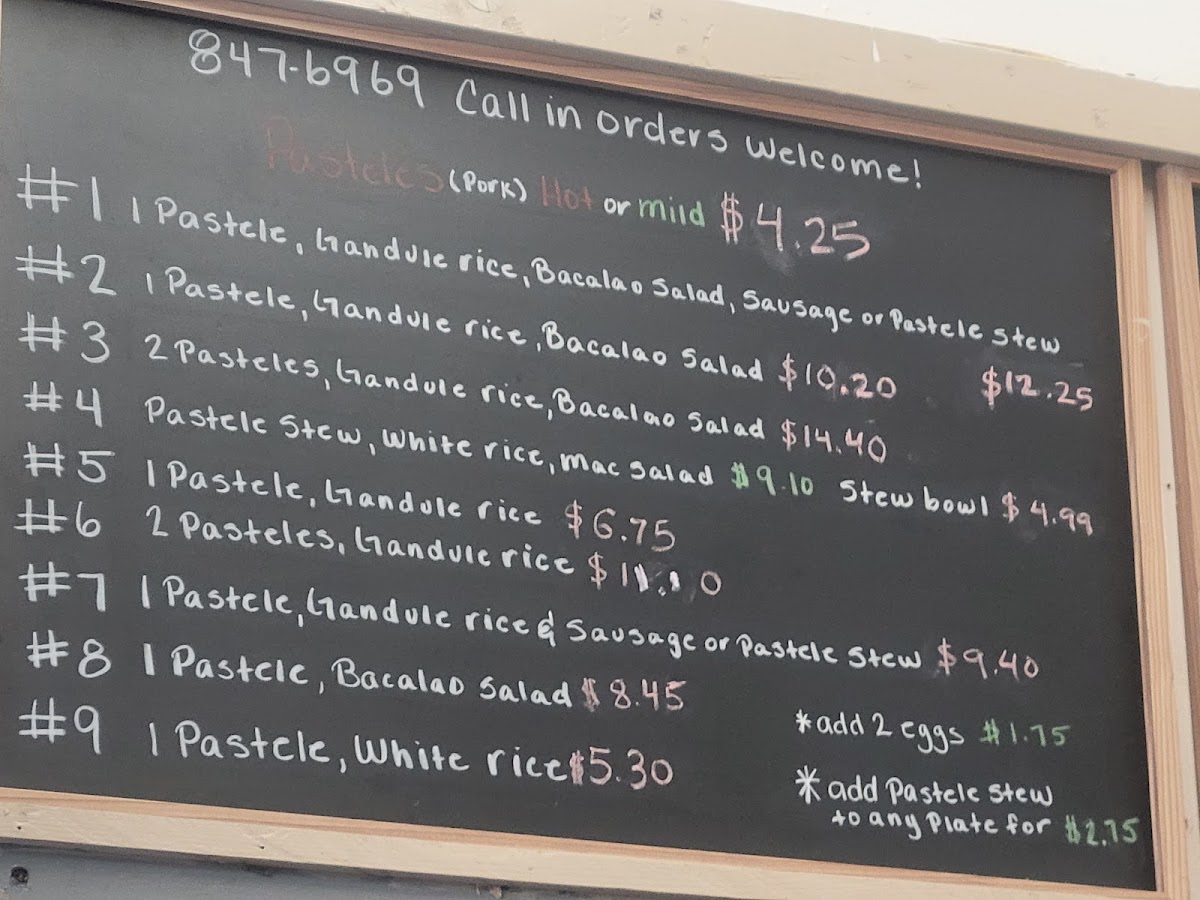 847-6969 Call in orders welcome!
Pasteles (Pork) Hot or mild $4.25
#1 1 Pastele, Gandule rice, Bacalao Salad, Sausage or Pastele Stew
$12.25
#2 1 Pastele, Gandule rice, Bacalao Salad $10.20
#3 2 Pasteles, Gandule rice, Bacalao Salad $14.40
#4 Pastele Stew, White rice, mac salad $9.10 Stew bowl $4.99
#5 1 Pastele, Gandule rice $6.75
#6 2 Pasteles, Gandule rice
#7 1 Pastele, Gandule rice & Sausage or Pastele Stew $9.40
#8 1 Pastele, Bacalao Salad $8.45
#9 1 Pastele, White rice $5.30
*add 2 eggs $1.75
*add Pastele Stew
to any Plate for $2.75